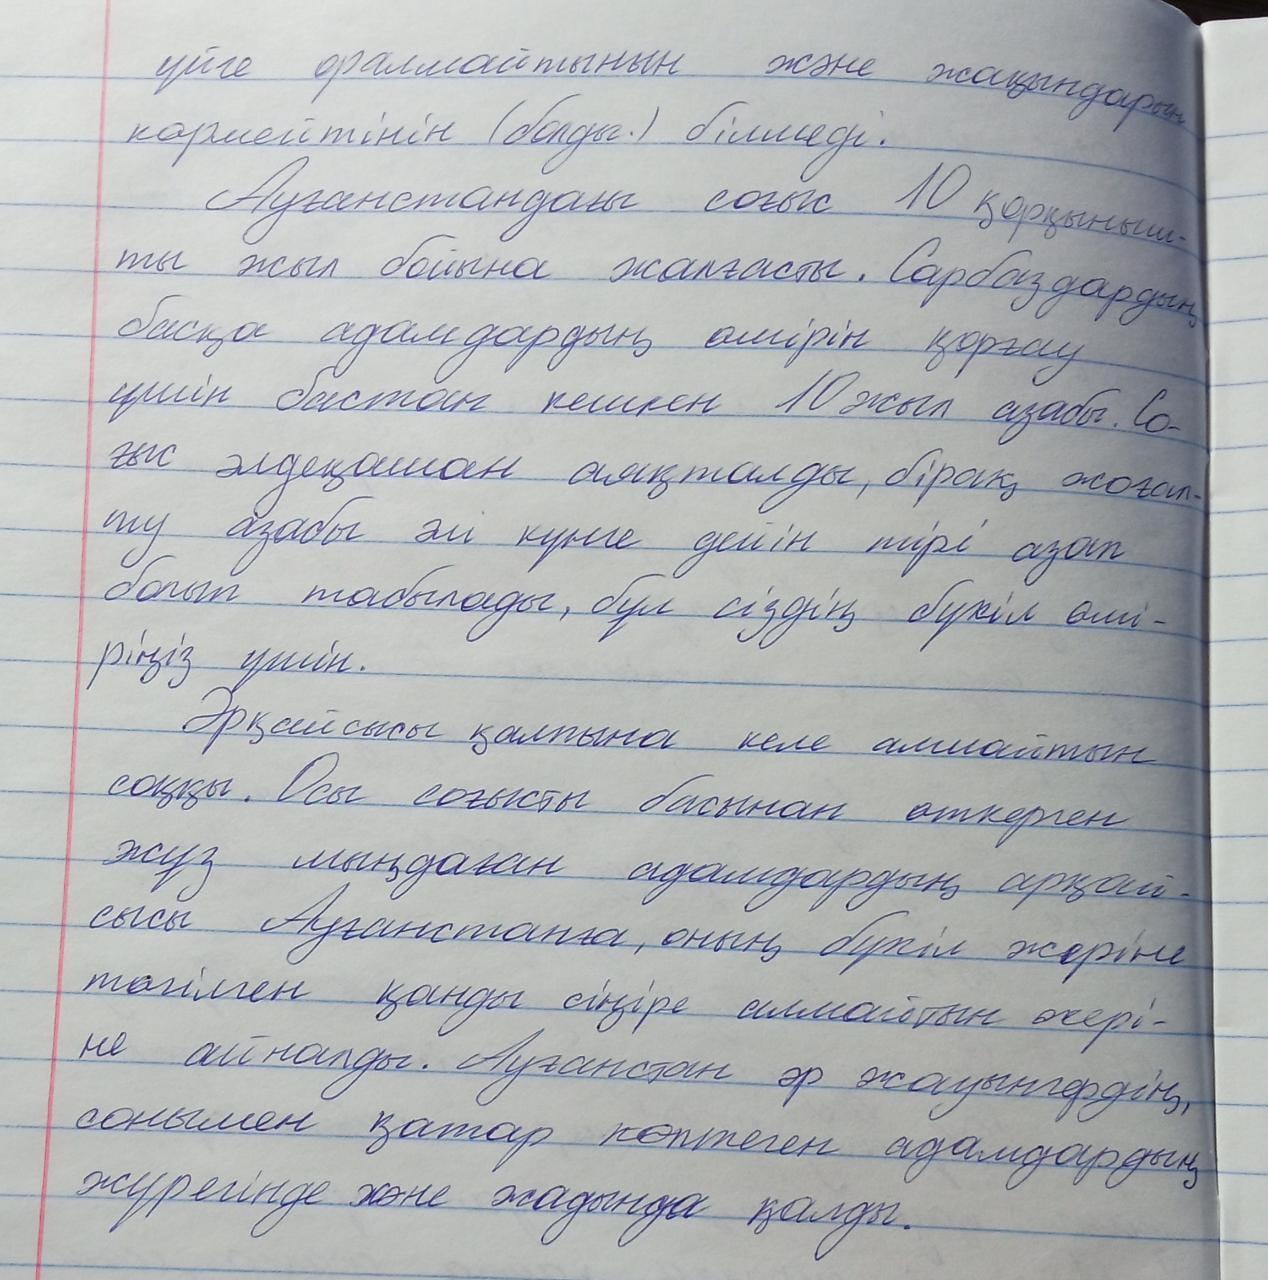 үйге оралмайтынын және жақындарын
көрмейтінін (болды.) білмеді.
Ауғанстандағы соғыс 10 қорқыныш-
ты жыл бойына жалғасты. Сарбаздардың
басқа адамдардың өмірін қорғау
үшін бастан кешкен 10 жыл азабы. Со-
ғыс әлдеқашан аяқталды, бірақ жоғал-
ту азабы әлі күнге дейін тірі азап
болып табылады, бұл сіздің бүкіл өмі-
ріңіз үшін.
Әрқайсысы қалпына келе алмайтын
соққы. Осы соғысты басынан өткерген
жүз мыңдаған адамдардың әрқай-
сысы Ауғанстанға, оның бүкіл жеріне
төгілген қанды сіңіре алмайтын жері-
не айналды. Ауғанстан әр жауынгердің,
сонымен қатар көптеген адамдардың
жүрегінде және жадында қалды.